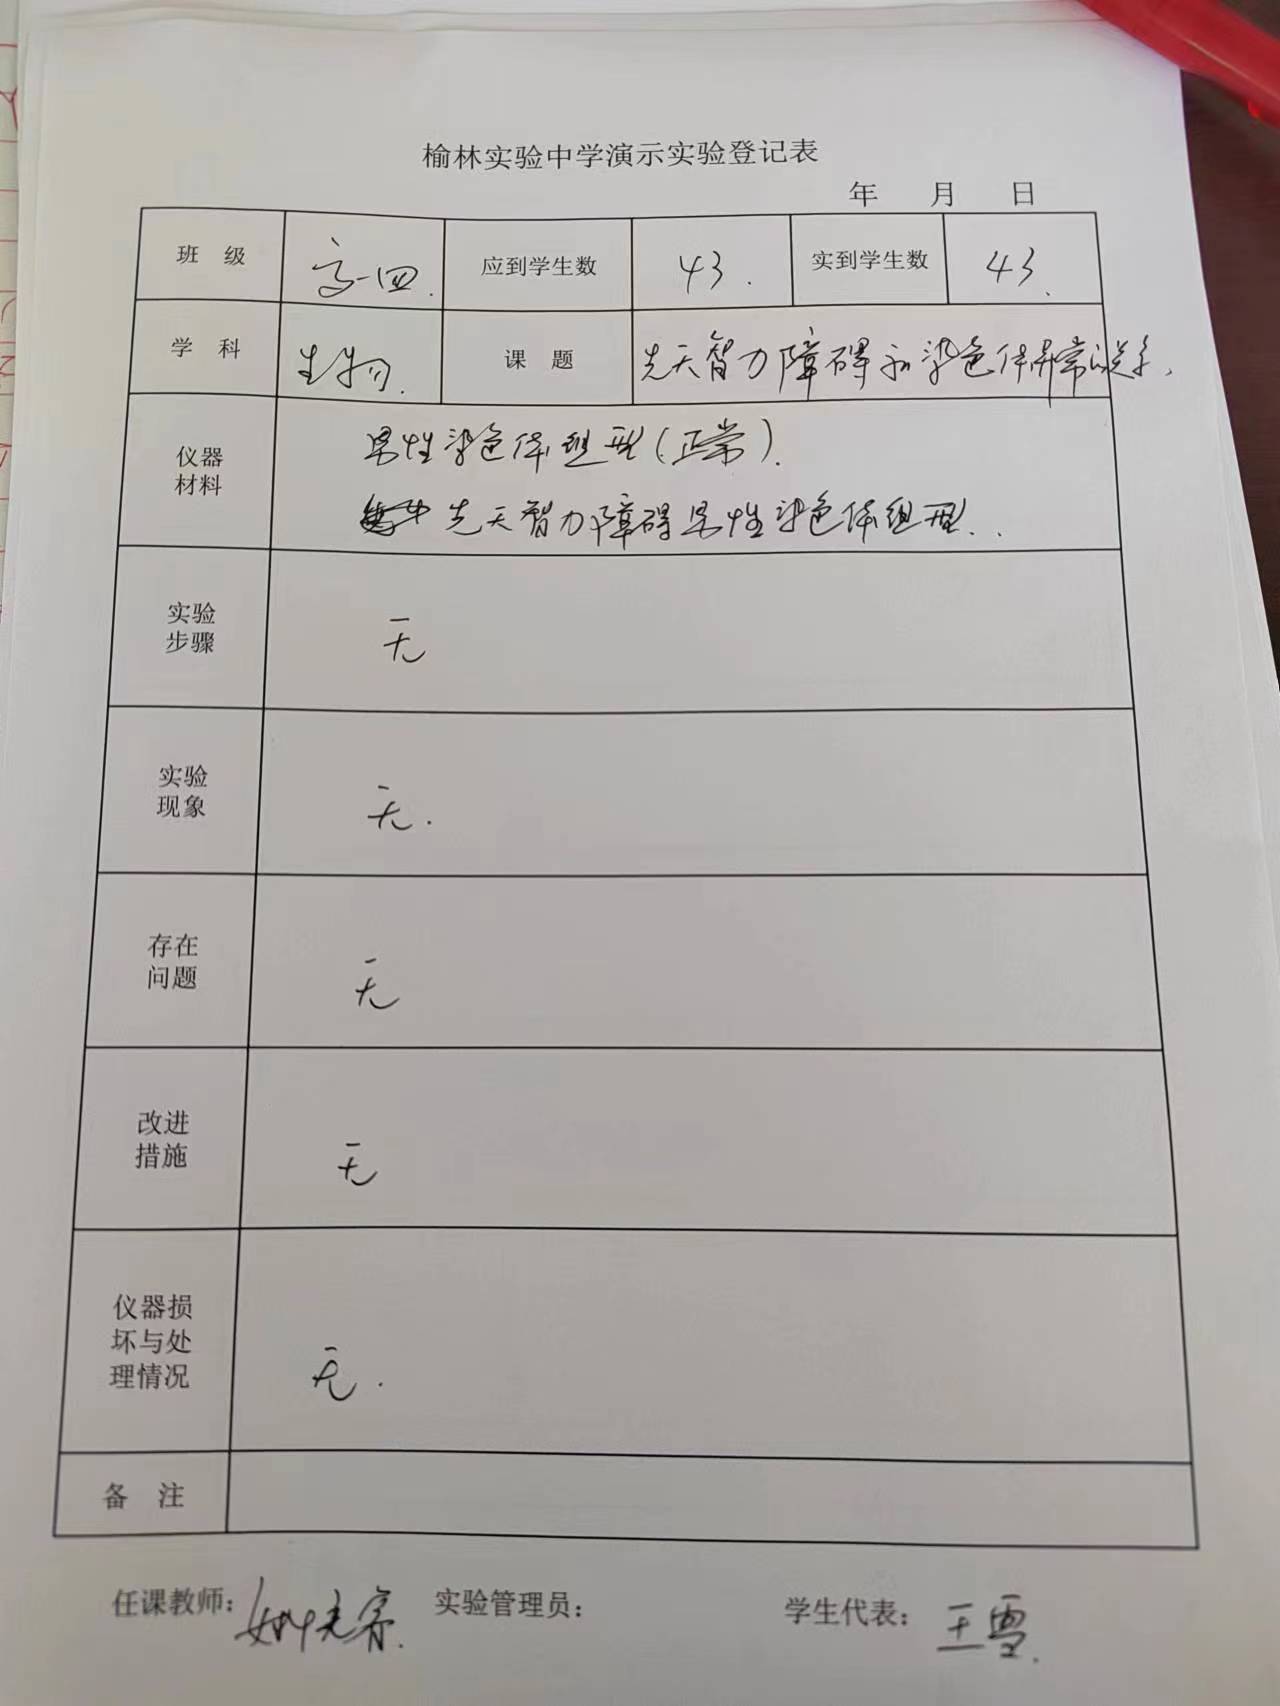 榆林实验中学演示实验登记表
年 月 日
班 级 高一四. 应到学生数 43. 实到学生数 43.
学 科 生物. 课 题 先天智力障碍和染色体异常的关系.
仪器
材料
男性染色体组型(正常).
先天智力障碍男性染色体组型..
实验
步骤
无
实验
现象
无.
存在
问题
无
改进
措施
无
仪器损
坏与处
理情况
无.
备 注
任课教师: 实验管理员: 学生代表: 王雪.